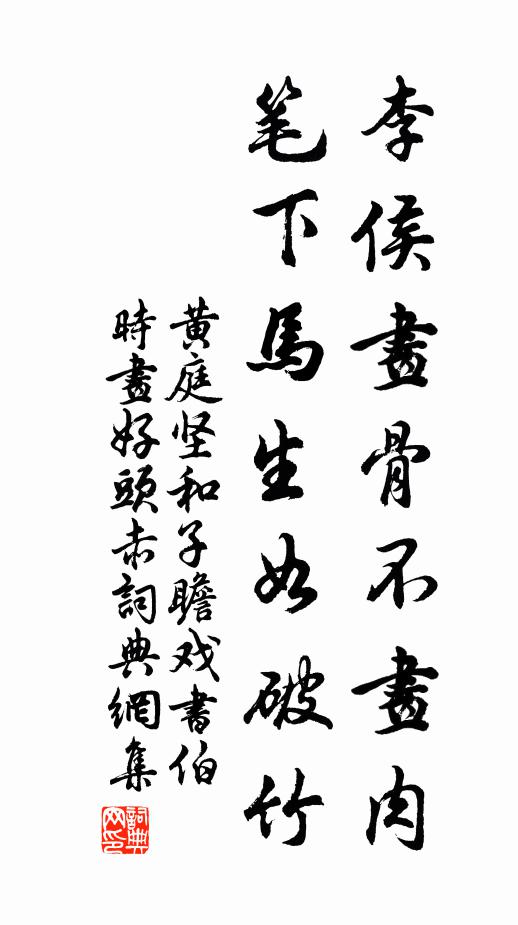 李侯畫骨不畫肉
笔下馬生如破竹
黄庭坚和子瞻戏書伯
時畫好頭赤詞典網集
詞典网印